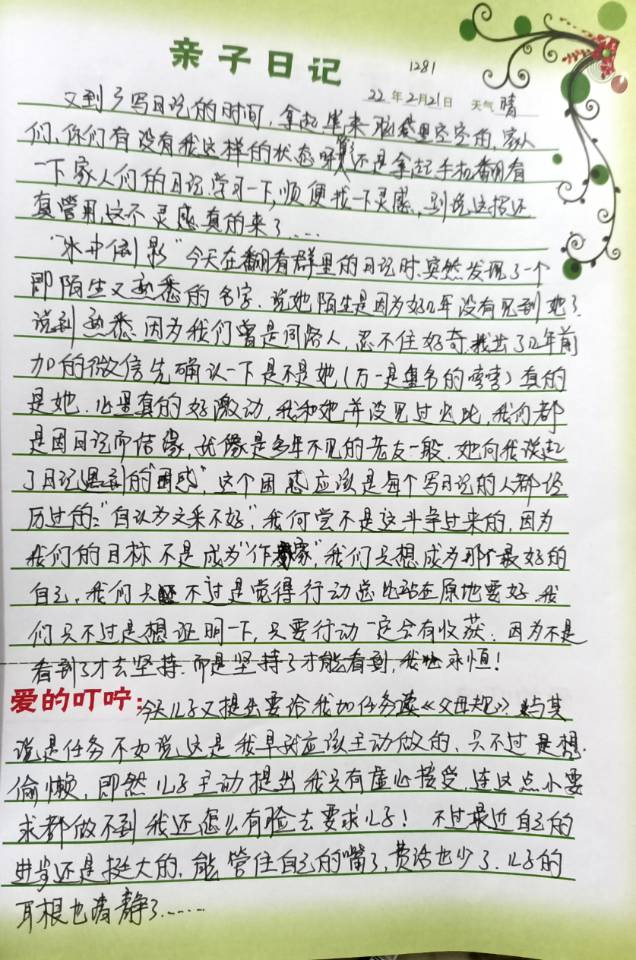 亲子日记
1281
22年2月21日 天气 晴
又到了写日记的时间，拿起笔来脑袋里空空的，家人
们，你们有没有我这样的状态呀，不是拿起手机翻看
一下家人们的日记，学习一下，顺便找一下灵感，别说这招还
真管用，这不灵感真的来了……
“水中倒影”今天在翻看群里的日记时，突然发现了一个
即陌生又熟悉的名字，说她陌生是因为好几年没有见到她了，
说到熟悉因为我们曾是同路人，忍不住好奇，我出了几年前
加的微信先确认一下是不是她（万一是重名的）真的
是她，心里真的好激动，我和她并没见过火比，我们都
是因日记而结缘，就像是多年不见的老友一般，她向我谈起
了日记遇到的“困惑”，这个困惑应该是每个写日记的人都经
历过的：“自认为文采不好”，我何尝不是这斗争过来的，因为
我们的目标不是成为“作家”，我们只想成为那个最好的
自己，我们只不过是觉得行动总比站在原地要好，我
们只不过是想证明一下，只要行动一定会有收获，因为不是
看到了才去坚持，而是坚持了才能看到，我 永恒！
爱的叮咛：今天儿子又提出要给我加任务读《父母规》，与其
说是任务不如说这是我早就应该主动做的，只不过是想
偷懒，即然儿子主动提出我只有虚心接受，连这点小要
求都做不到我还怎么有脸去要求儿子！不过最近自己的
进步还是挺大的，能管住自己的嘴了，费话也少了，儿子的
耳根也清静了……